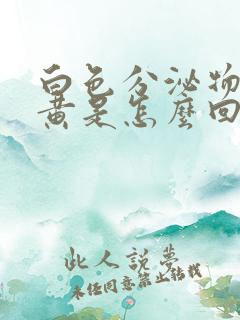 白色分泌物
黄是怎麼回
此人說夢
未經同意禁止轉載